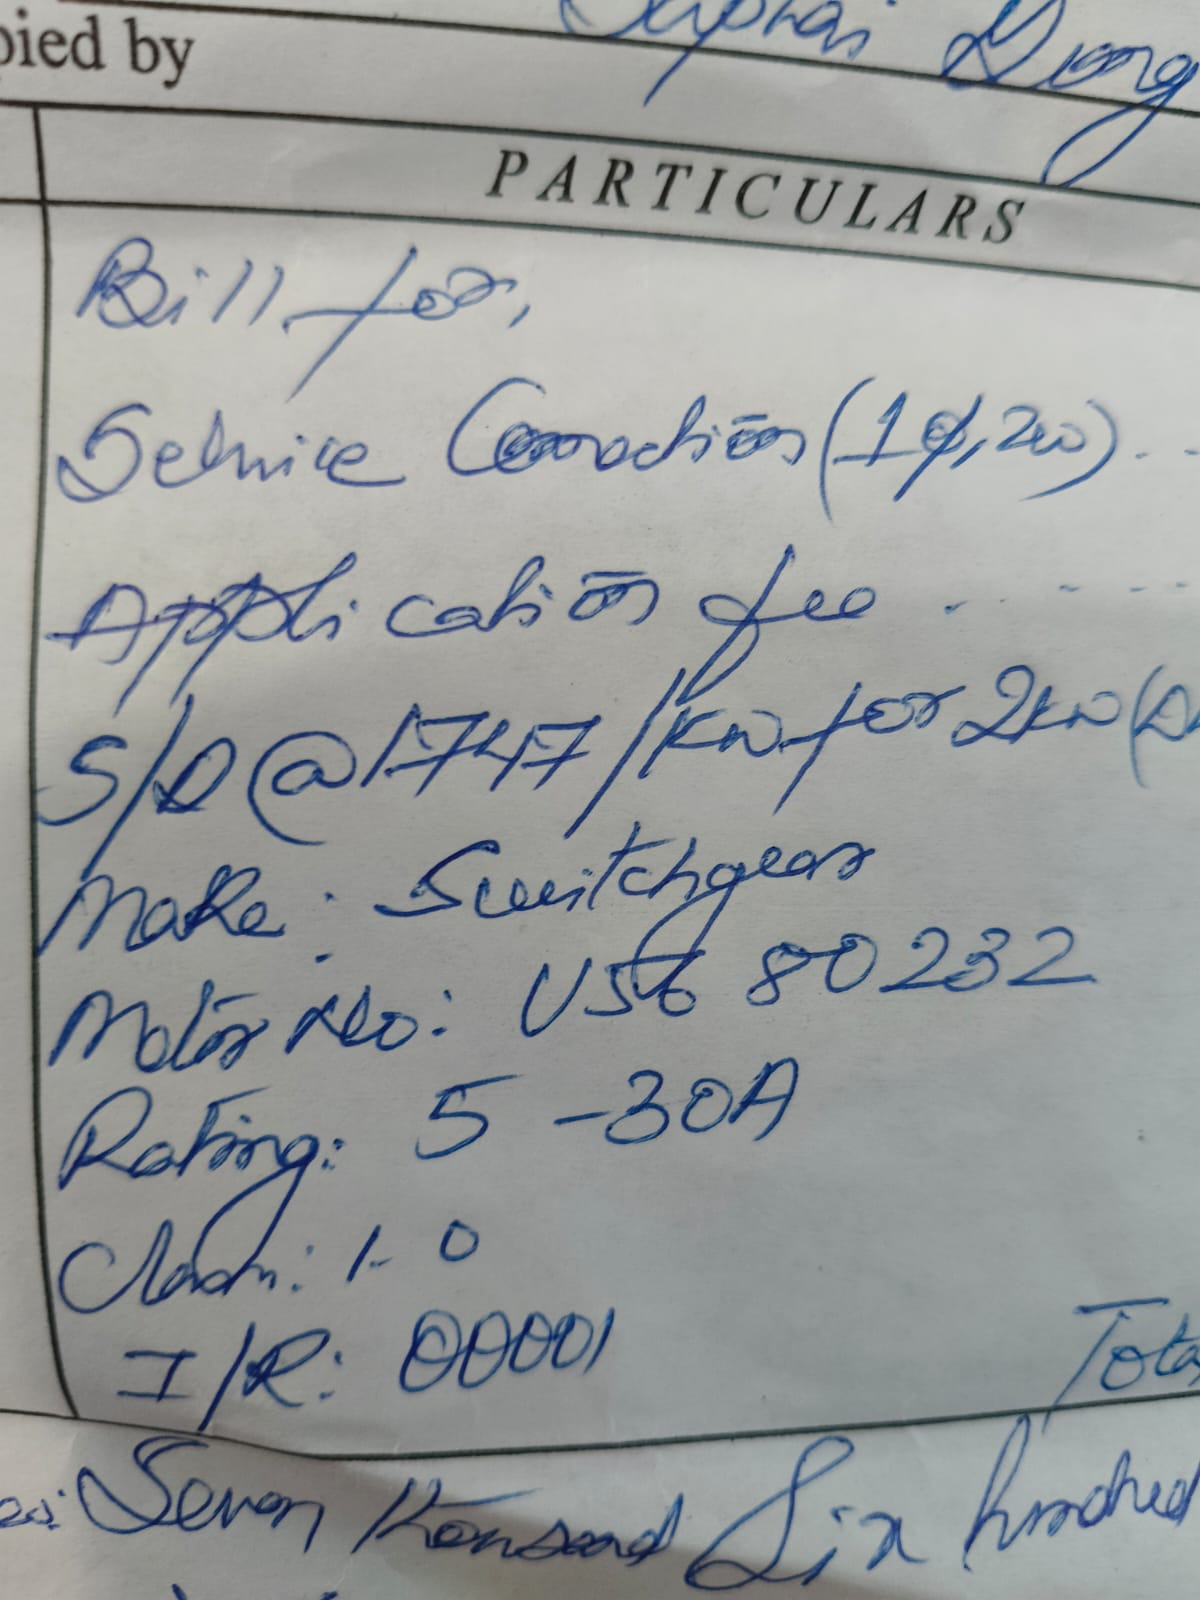 pied by
PARTICULARS
Bill for,
Service Connection (1ϕ, 2w) . .
Application fee . . . . .
S/D @ 1747/KW for 2KW (D
Make: Switchgear
Meter No: 80232
Rating: 5-30A
Class: 1.0
I/R: 00001
Tota
es: Seven thousand Six hundred